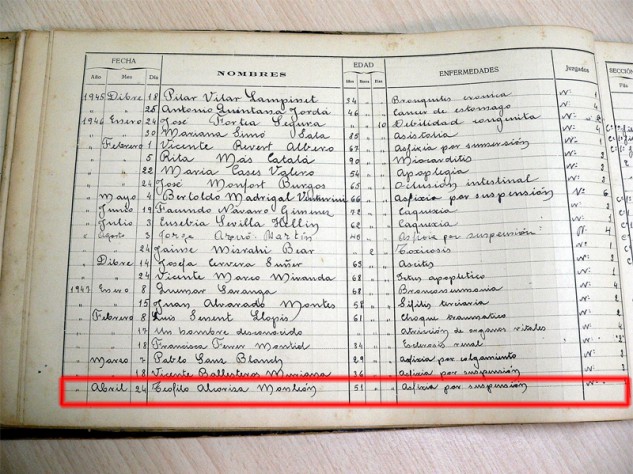 FECHA NOMBRES EDAD ENFERMEDADES Juzgados SECCIÓN
Año Mes Día Años Meses Días
1945 Dibre 18 Pilar Vilar Lampinet 34 " " Bronquitis cronica Nº 1
" " 26 Antonio Quintana Jordá 46 " " Cancer de estomago Nº 4
1946 Enero 24 José Fortea Segura " " 10 Debilidad congenita Nº
" " 30 Mariana Simó Sala 85 " " Asistolia Nº 4
" Febrero 1 Vicente Revert Albero 67 " " Asfixia por sumersión Nº 1
" " 5 Rita Más Catalá 90 " " Miocarditis Nº 2
" " 22 Maria Cases Valero 54 " " Apoplegia Nº 2
" " 24 José Monfort Burgos 65 " " Oclusión intestinal Nº 2
" Mayo 4 Bertoldo Madrigal 66 " " Asfixia por suspensión Nº 6
" Junio 19 Facundo Navarro Gimenez 72 " " Caquexia Nº 2
" Julio 3 Eusebia Sevilla Hellin 62 " " Caquexia Nº 1
" Agosto 3 Jorge Martin 40 " " Asfixia por suspensión Nº 4
" " 24 Jaime Misrahi Bear " 2 " Toxicosis Nº 2
" Dibre 14 Josefa Cervera Suñer 65 " " Ascitis Nº 2
" " 24 Vicente Marco Miranda 68 " " Ictus apopletico Nº 1
1947 Enero 8 Guemar Saranga 68 " " Bronconeumonia Nº
" " 15 Juan Alvarado Montes 58 " " Sifilis terciaria Nº
" Febrero 8 Luis Senent Llopis 61 " " Choque traumatico Nº 2
" " 17 Un hombre desconocido " " Atrición de organos vitales Nº 4
" " 18 Francisca Ferrer Montiel 84 " " Esclerosis renal Nº 2
" Marzo 7 Pablo Sanz Blanch 29 " " Asfixia por colgamiento Nº
" " 18 Vicente Ballesteros Muriana 36 " " Asfixia por suspensión Nº
" Abril 24 Teofilo Alcorisa Monleón 51 " " Asfixia por suspensión Nº